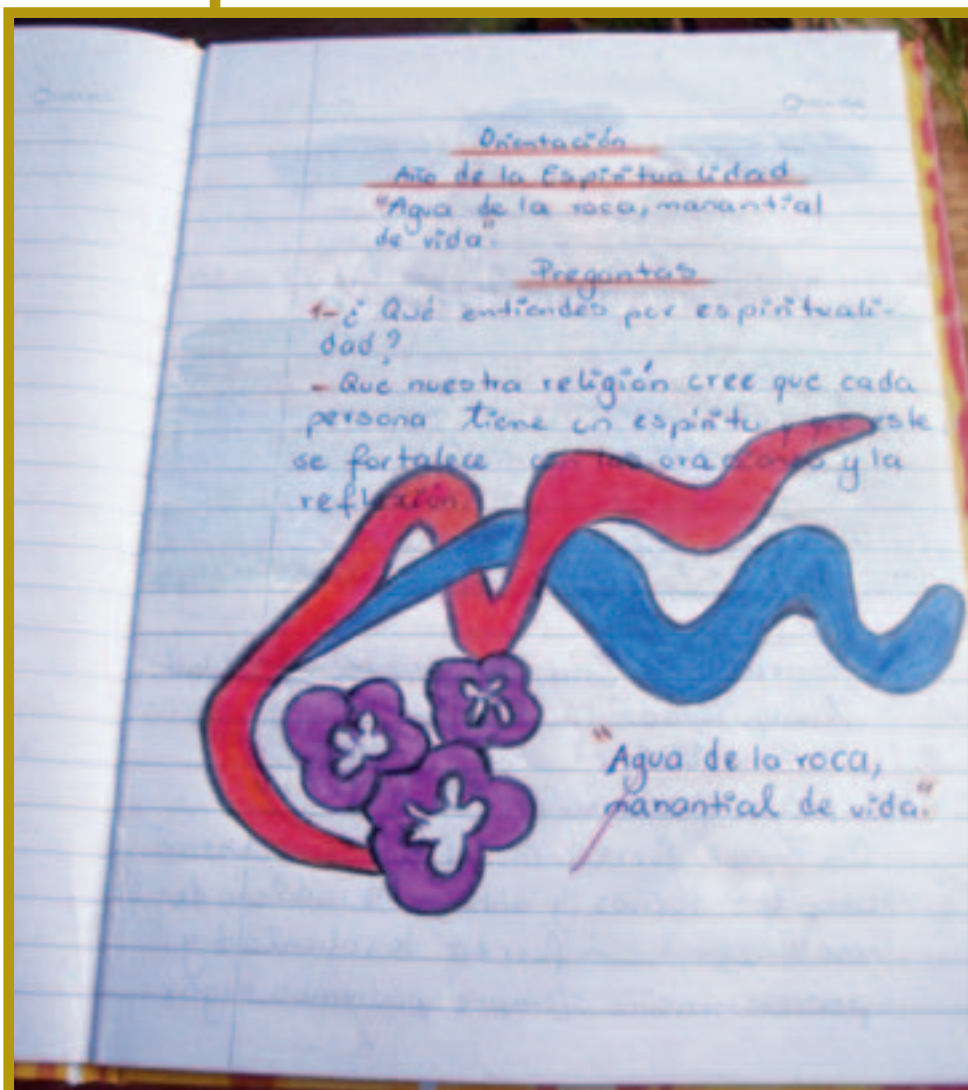 Orientación
Año de la Espiritualidad
"Agua de la roca, manantial
de vida".
Preguntas
1-¿Qué entiendes por espirituali-
dad?
- Que nuestra religión cree que cada
persona tiene un espíritu y este
se fortalece con las oraciones y la
reflexión.
"Agua de la roca,
manantial de vida."